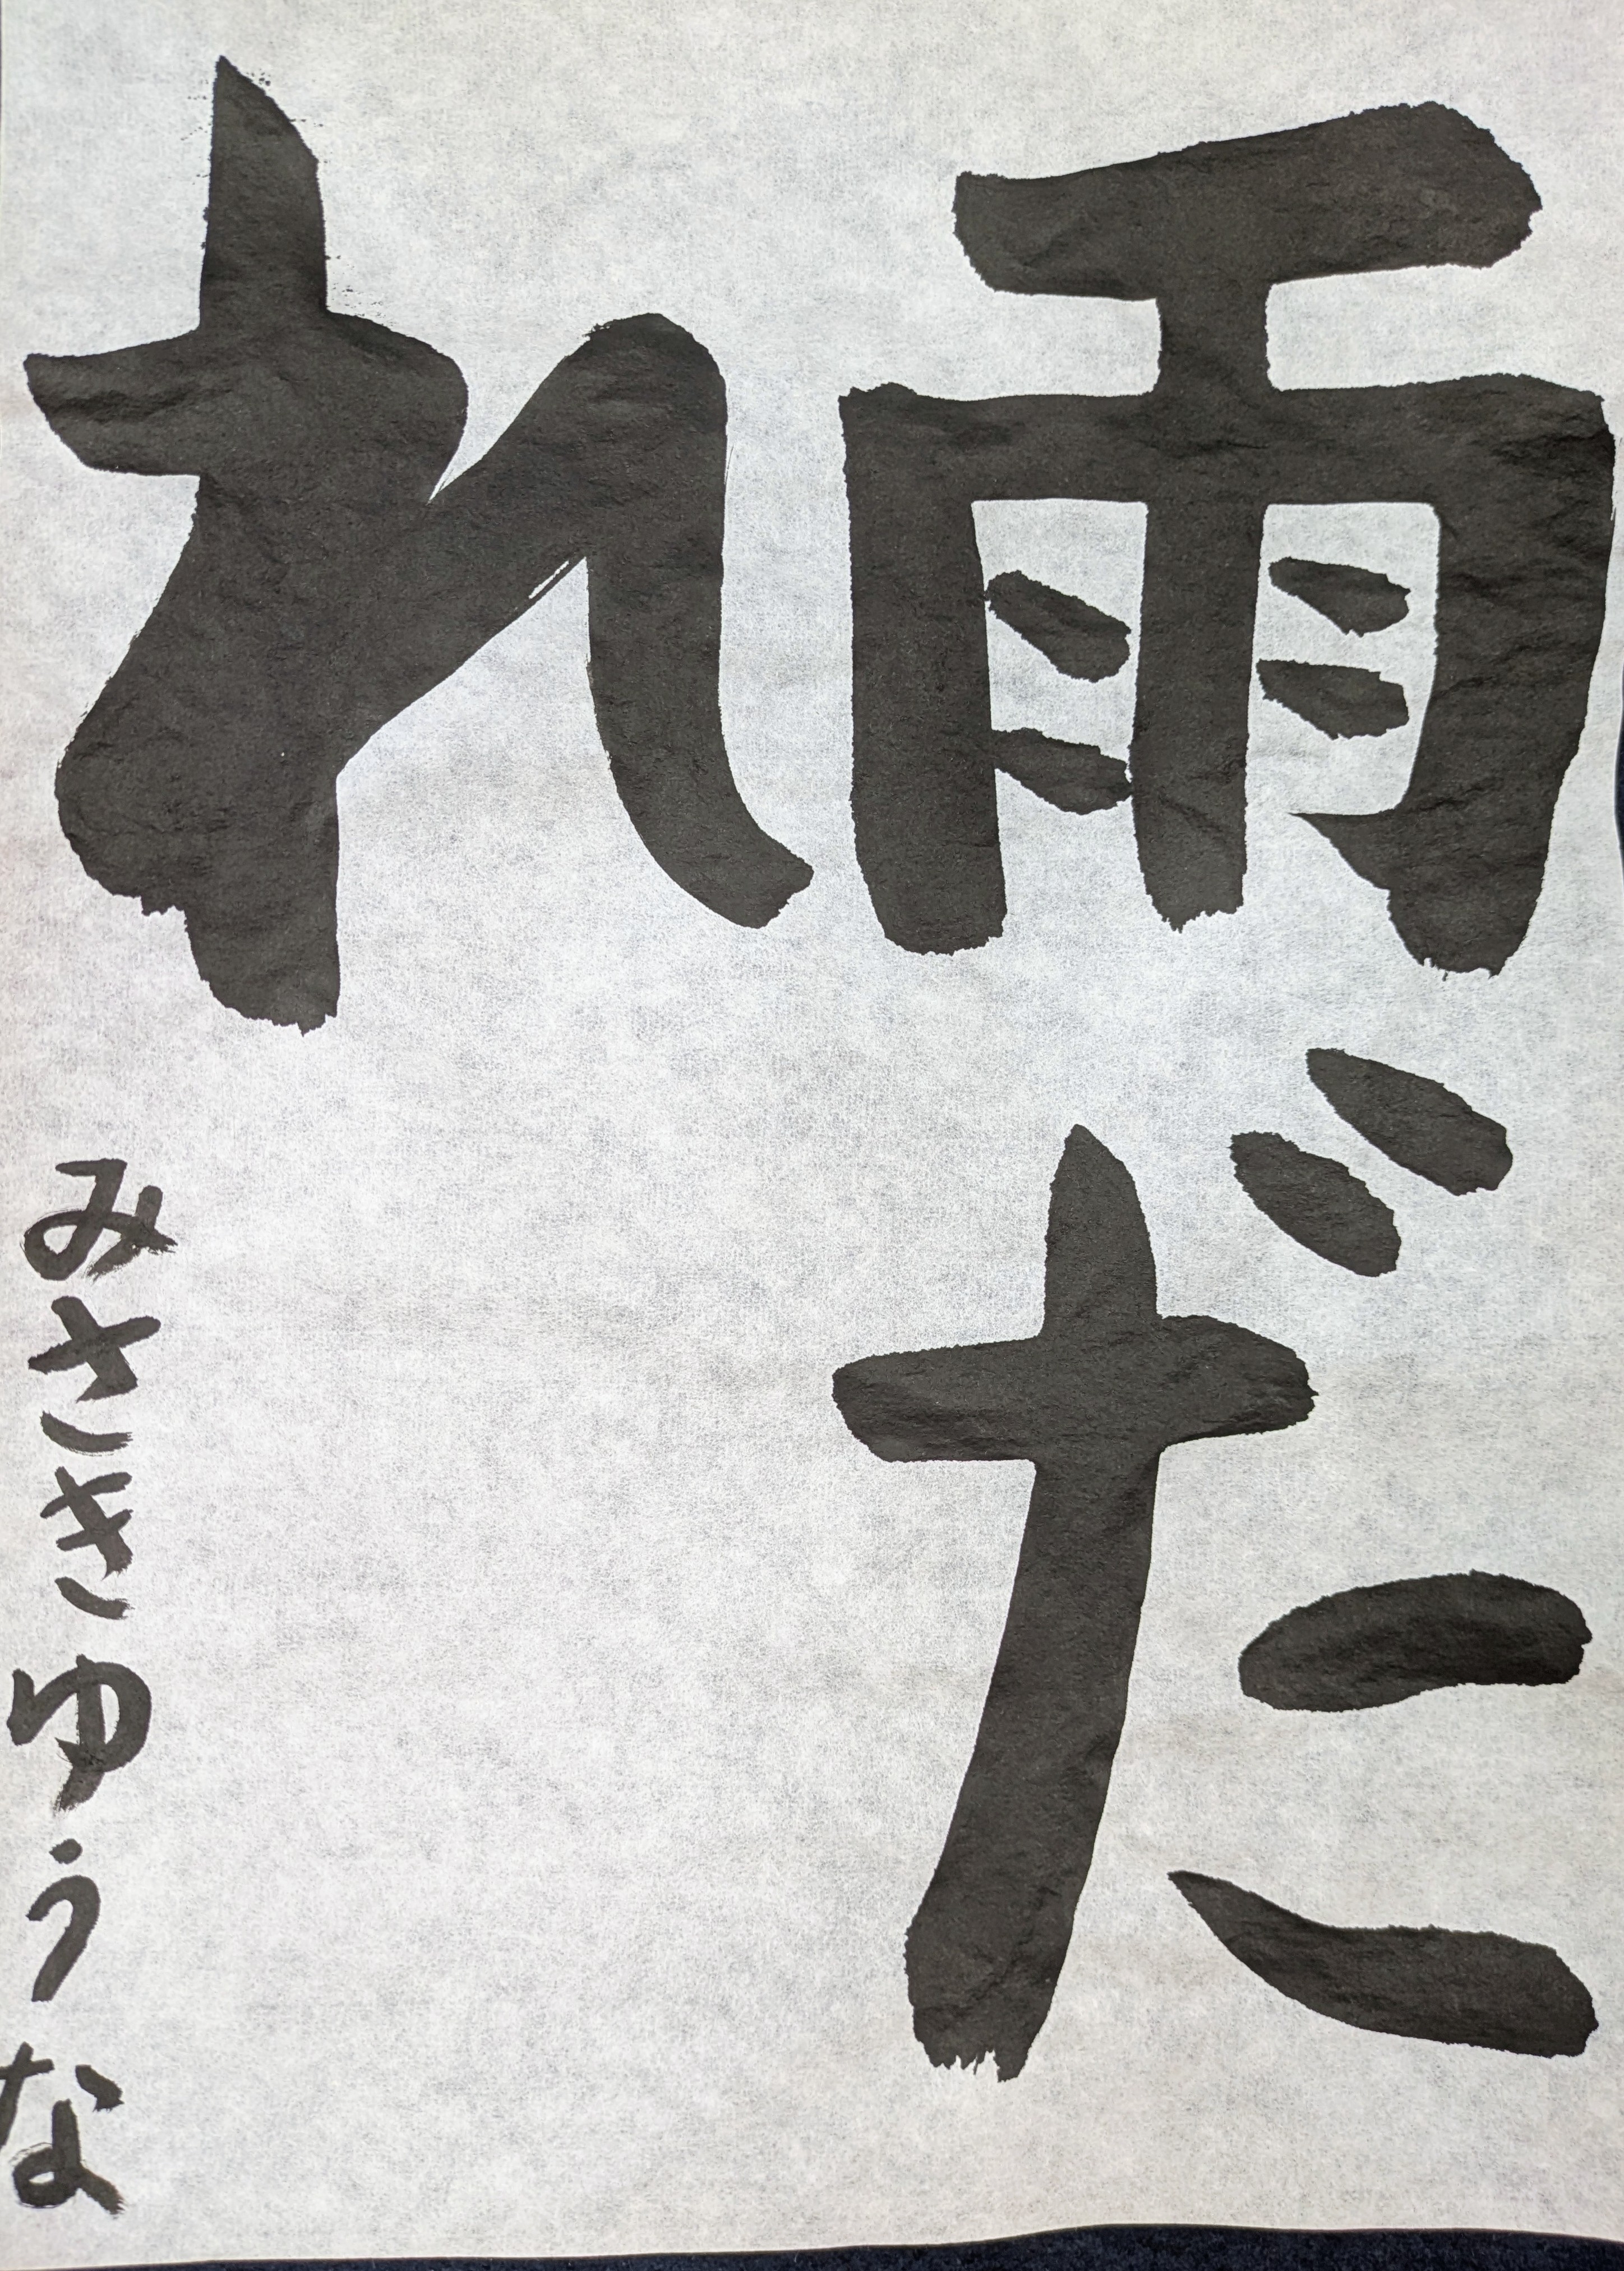 雨だ
れ
みさきゆうな